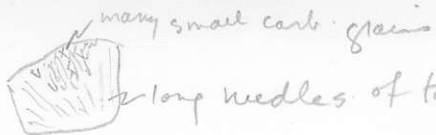 many small carb. grains
long needles of